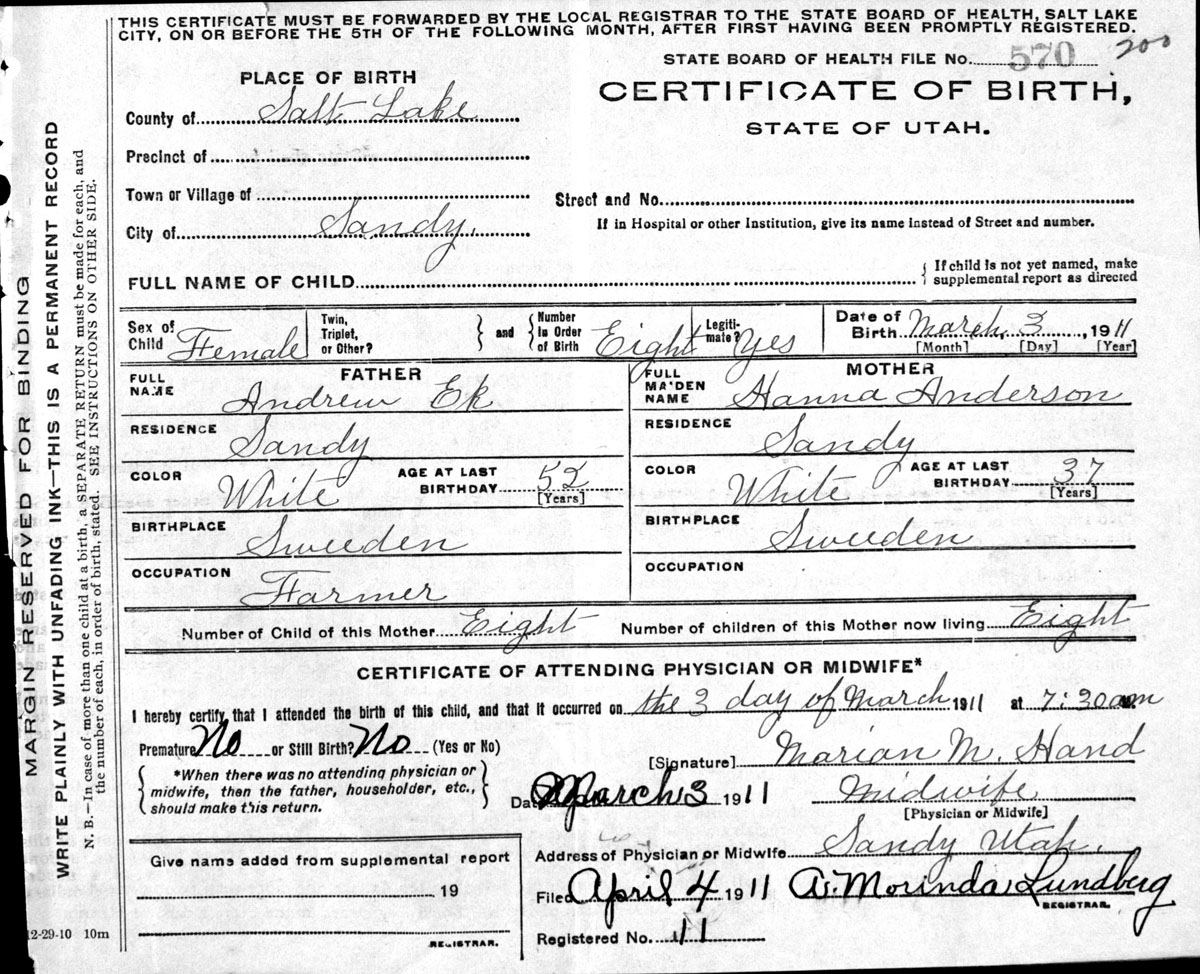 THIS CERTIFICATE MUST BE FORWARDED BY THE LOCAL REGISTRAR TO THE STATE BOARD OF HEALTH, SALT LAKE
CITY, ON OR BEFORE THE 5TH OF THE FOLLOWING MONTH, AFTER FIRST HAVING BEEN PROMPTLY REGISTERED.
STATE BOARD OF HEALTH FILE No. 570 200
PLACE OF BIRTH
CERTIFICATE OF BIRTH,
STATE OF UTAH.
County of Salt Lake
Precinct of
Town or Village of
Street and No.
City of Sandy.
If in Hospital or other Institution, give its name instead of Street and number.
FULL NAME OF CHILD
{ If child is not yet named, make
supplemental report as directed
Sex of Child Female
Twin, Triplet, or Other?
} and { Number in Order of Birth Eight
Legitimate? Yes
Date of Birth March 3, 1911
[Month] [Day] [Year]
FATHER
FULL NAME Andrew Ek
RESIDENCE Sandy
COLOR White AGE AT LAST BIRTHDAY 52 [Years]
BIRTHPLACE Sweeden
OCCUPATION Farmer
MOTHER
FULL MAIDEN NAME Hanna Anderson
RESIDENCE Sandy
COLOR White AGE AT LAST BIRTHDAY 37 [Years]
BIRTHPLACE Sweeden
OCCUPATION
Number of Child of this Mother Eight Number of children of this Mother now living Eight
CERTIFICATE OF ATTENDING PHYSICIAN OR MIDWIFE*
I hereby certify that I attended the birth of this child, and that it occurred on the 3 day of March 1911 at 7:30 am
Premature No or Still Birth? No (Yes or No)
[Signature] Marian M. Hand
{ *When there was no attending physician or
midwife, then the father, householder, etc.,
should make this return. }
March 3 1911 Midwife
[Physician or Midwife]
Address of Physician or Midwife Sandy Utah.
Give name added from supplemental report
19
REGISTRAR.
Filed April 4 1911 A. Morinda Lundberg
REGISTRAR.
Registered No. 11
12-29-10 10m
MARGIN RESERVED FOR BINDING
WRITE PLAINLY WITH UNFADING INK—THIS IS A PERMANENT RECORD
N. B.—In case of more than one child at a birth, a SEPARATE RETURN must be made for each, and
the number of each, in order of birth, stated. SEE INSTRUCTIONS ON OTHER SIDE.